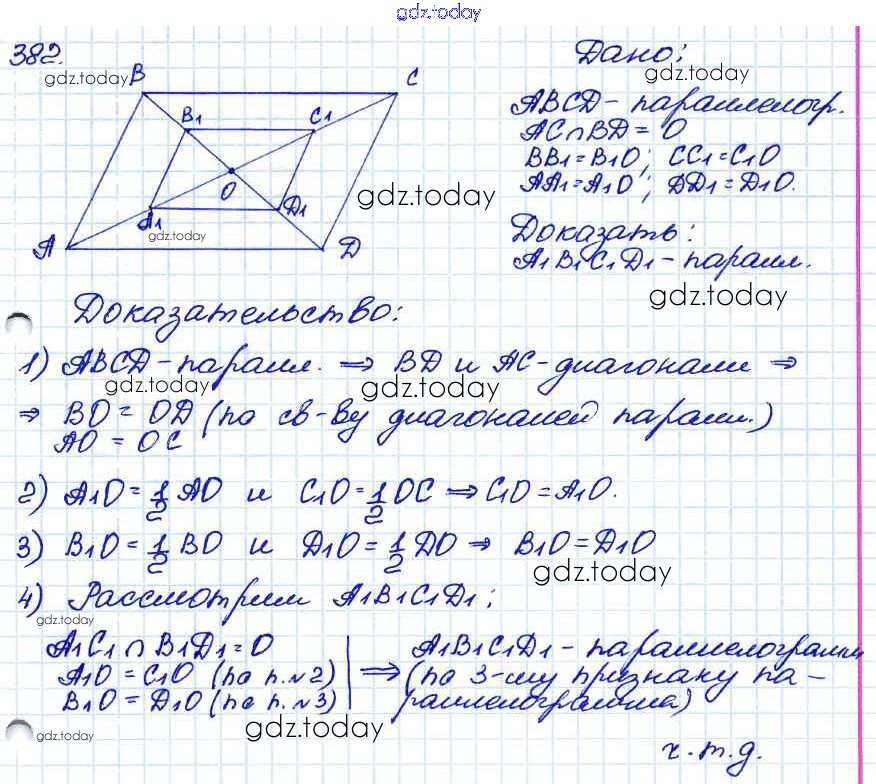 gdz.today
382.
gdz.today
B
C
B₁
C₁
O
A₁
D₁
gdz.today
gdz.today
A
D
Дано:
gdz.today
ABCD - параллелогр.
AC∩BD = O
BB₁ = B₁O; CC₁ = C₁O
AA₁ = A₁O; DD₁ = D₁O.
Доказать:
A₁B₁C₁D₁ - паралл.
gdz.today
Доказательство:
1) ABCD - паралл. ⇒ BD и AC - диагонали ⇒
gdz.today
gdz.today
⇒ BO = OD (по св-ву диагоналей паралл.)
AO = OC
2) A₁O = 1/2 AO и C₁O = 1/2 OC ⇒ C₁O = A₁O.
3) B₁O = 1/2 BO и D₁O = 1/2 DO ⇒ B₁O = D₁O
gdz.today
4) Рассмотрим A₁B₁C₁D₁:
gdz.today
A₁C₁ ∩ B₁D₁ = O
A₁O = C₁O (по п.№2)
B₁O = D₁O (по п.№3)
⇒ A₁B₁C₁D₁ - параллелограмм
(по 3-му признаку па-
раллелограмма)
gdz.today
gdz.today
ч.т.д.